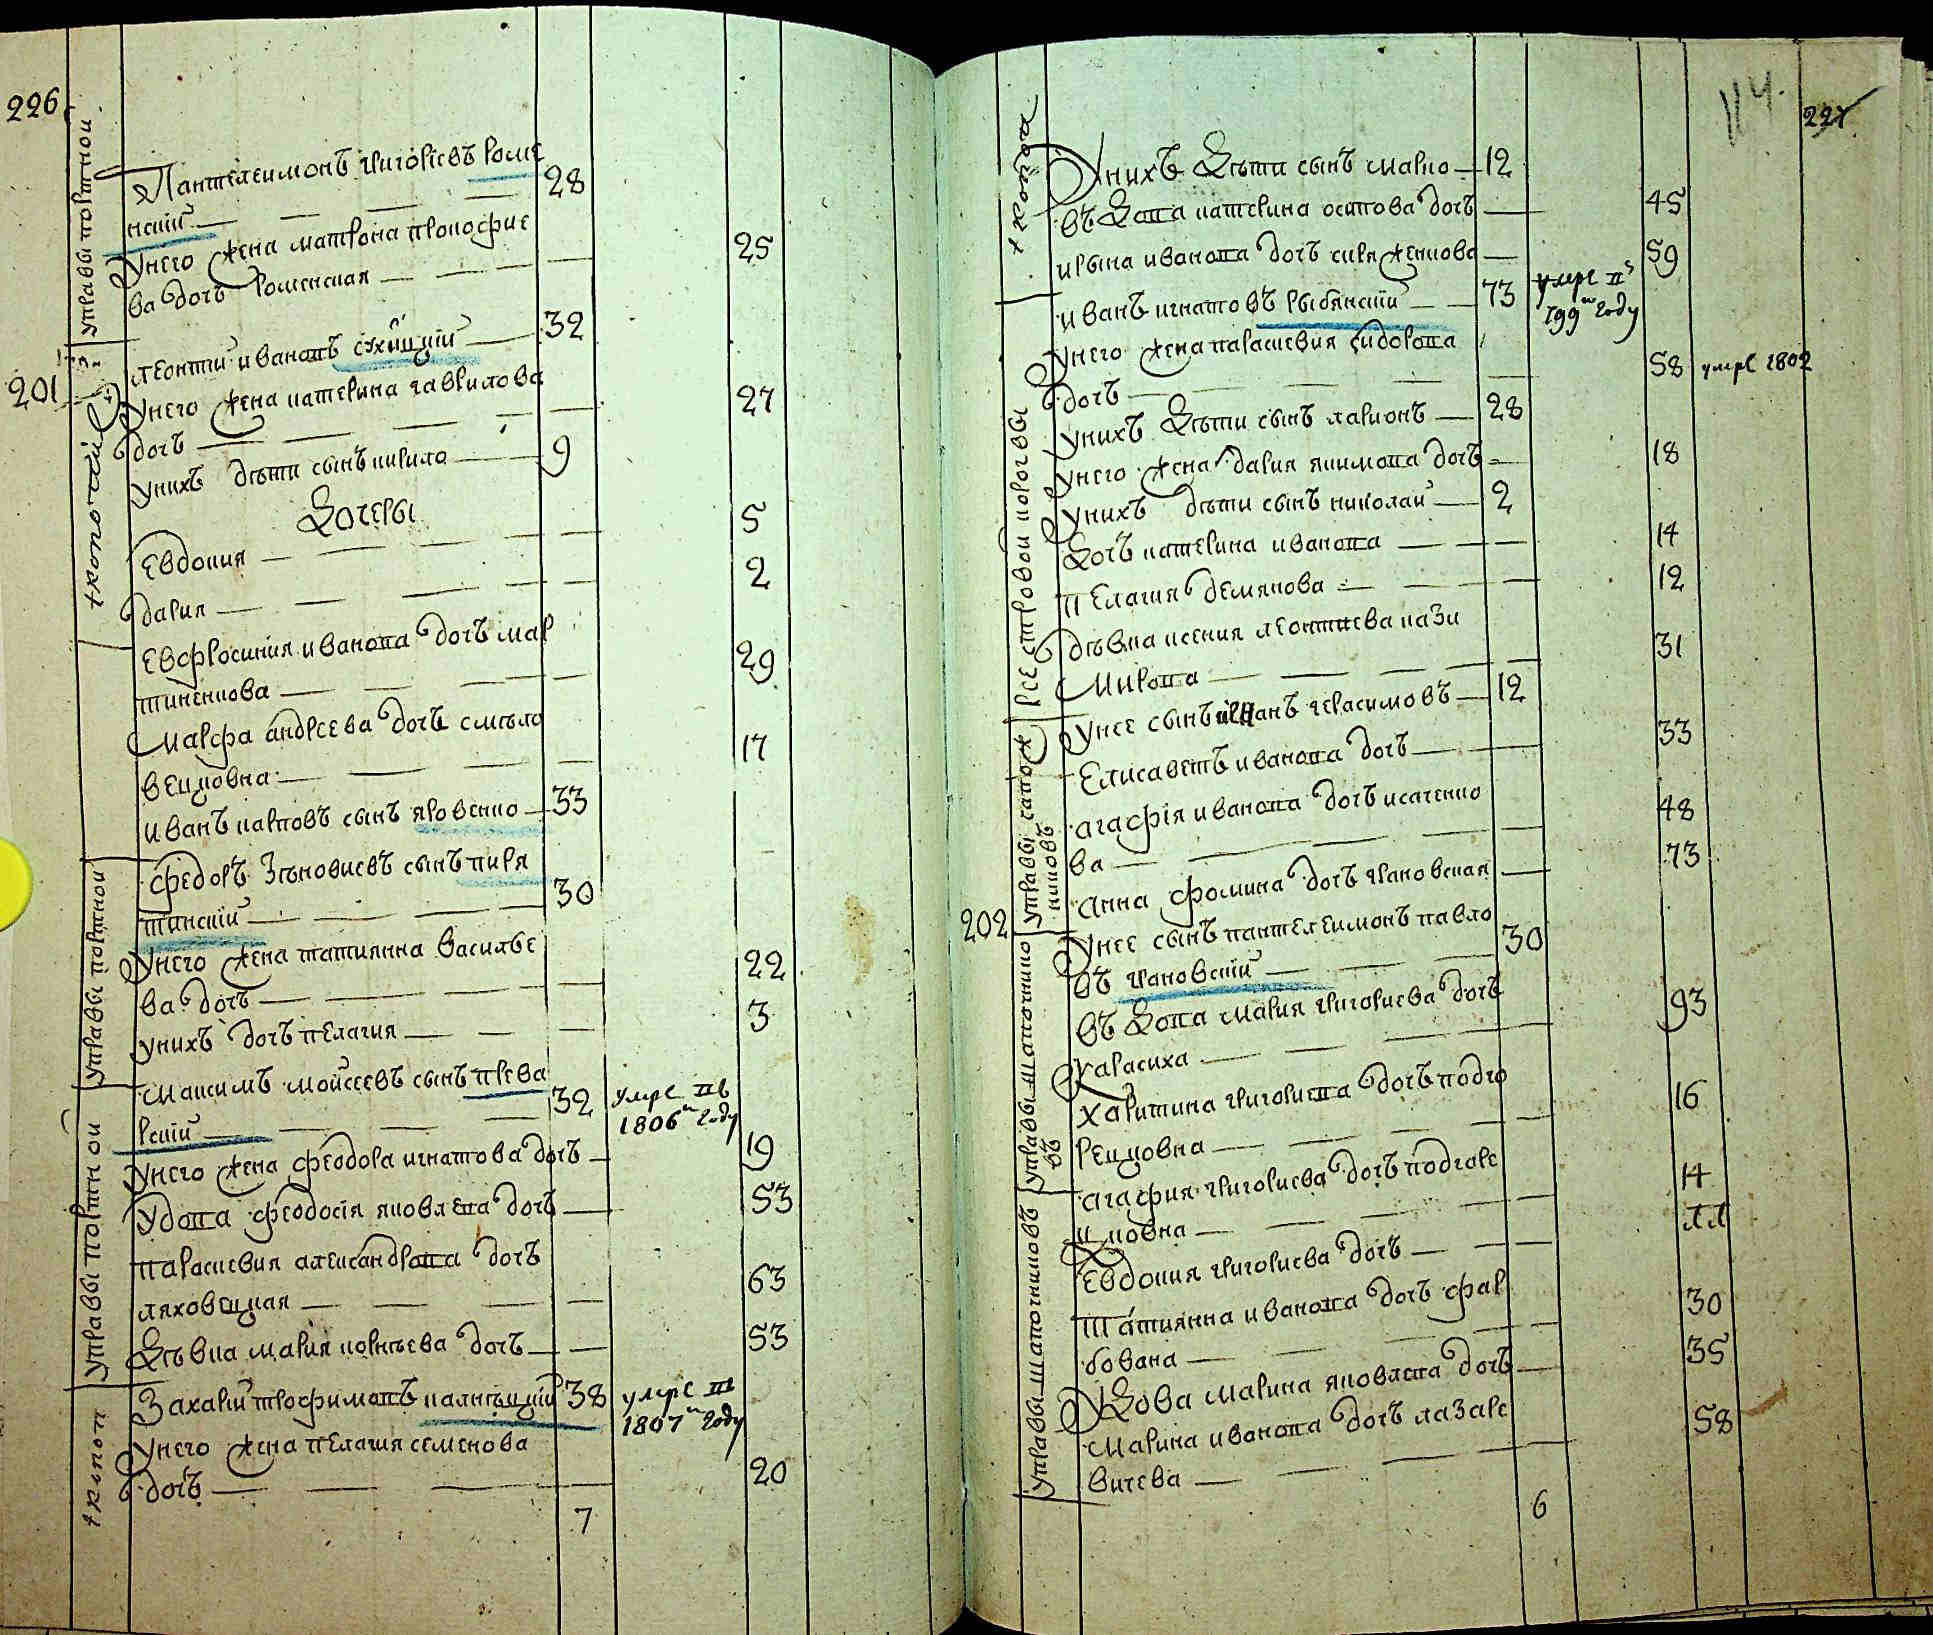 226
управы портной
Пантелеимонъ григориевъ роме
нский 28
унего жена матрона прокофие
ва дочь роменская 25
201
леонтий ивановъ 32
унего жена катерина гаврилова
дочь 27
унихъ дѣти сынъ кирило 9
дочеры
Евдокия 5
дария 2
Евфросиния иванова дочь мар
тиненкова 29
Марфа андреева дочь смѣло
вецковна 17
иванъ карповъ сынъ яровенко 33
управы портной
федоръ Зѣновиевъ сынъ пиря
тинский 30
унего жена татиянна василье
ва дочь 22
унихъ дочь пелагия 3
управы портной
Максимъ мойсеевъ сынъ прева
рский 32 умре IIв
1806м году
унего жена феодора игнатова дочь 19
удова феодосия яковлева дочь 53
параскевия александрова дочь
ляховецкая 63
дѣвка мария корнѣева дочь 53
Захарий трофимовъ калнѣцкий 38 умре III
1807м году
унего жена пелагия семенова
дочь 20
7
114.
227
унихъ дѣти сынъ марко 12
въдова катерина осипова дочь 45
ирына иванова дочь сиряченкова 59
Реестровой коровы
иванъ игнатовъ рыбянский 73 умре II
799м году
унего жена параскевия сидорова
дочь 58 умре 1802
унихъ дѣти сынъ ларионъ 28
унего жена дария якимова дочь 18
унихъ дѣти сынъ николай 2
дочь катерина иванова 14
пелагия демянова 12
дѣвка ксения леонтиева кази
мирова 31
управы сапож
никовъ
унее сынъ иванъ герасимовъ 12
Елисаветъ иванова дочь 33
агафия иванова дочь исаченко
ва 48
анна фомина дочь грановская 73
202
управы шапочнико
въ
унее сынъ пантелеимонъ павло
въ грановский 30
въдова мария григориева дочь
карасиха 93
харитина григориева дочь подго
рецковна 16
управы шапочниковъ
агафия григориева дочь подгоре
цковна 14
Евдокия григориева дочь 11
Татиянна иванова дочь фар
бована 30
удова марина яковлева дочь 35
Марина иванова дочь лазаре
вичева 58
6